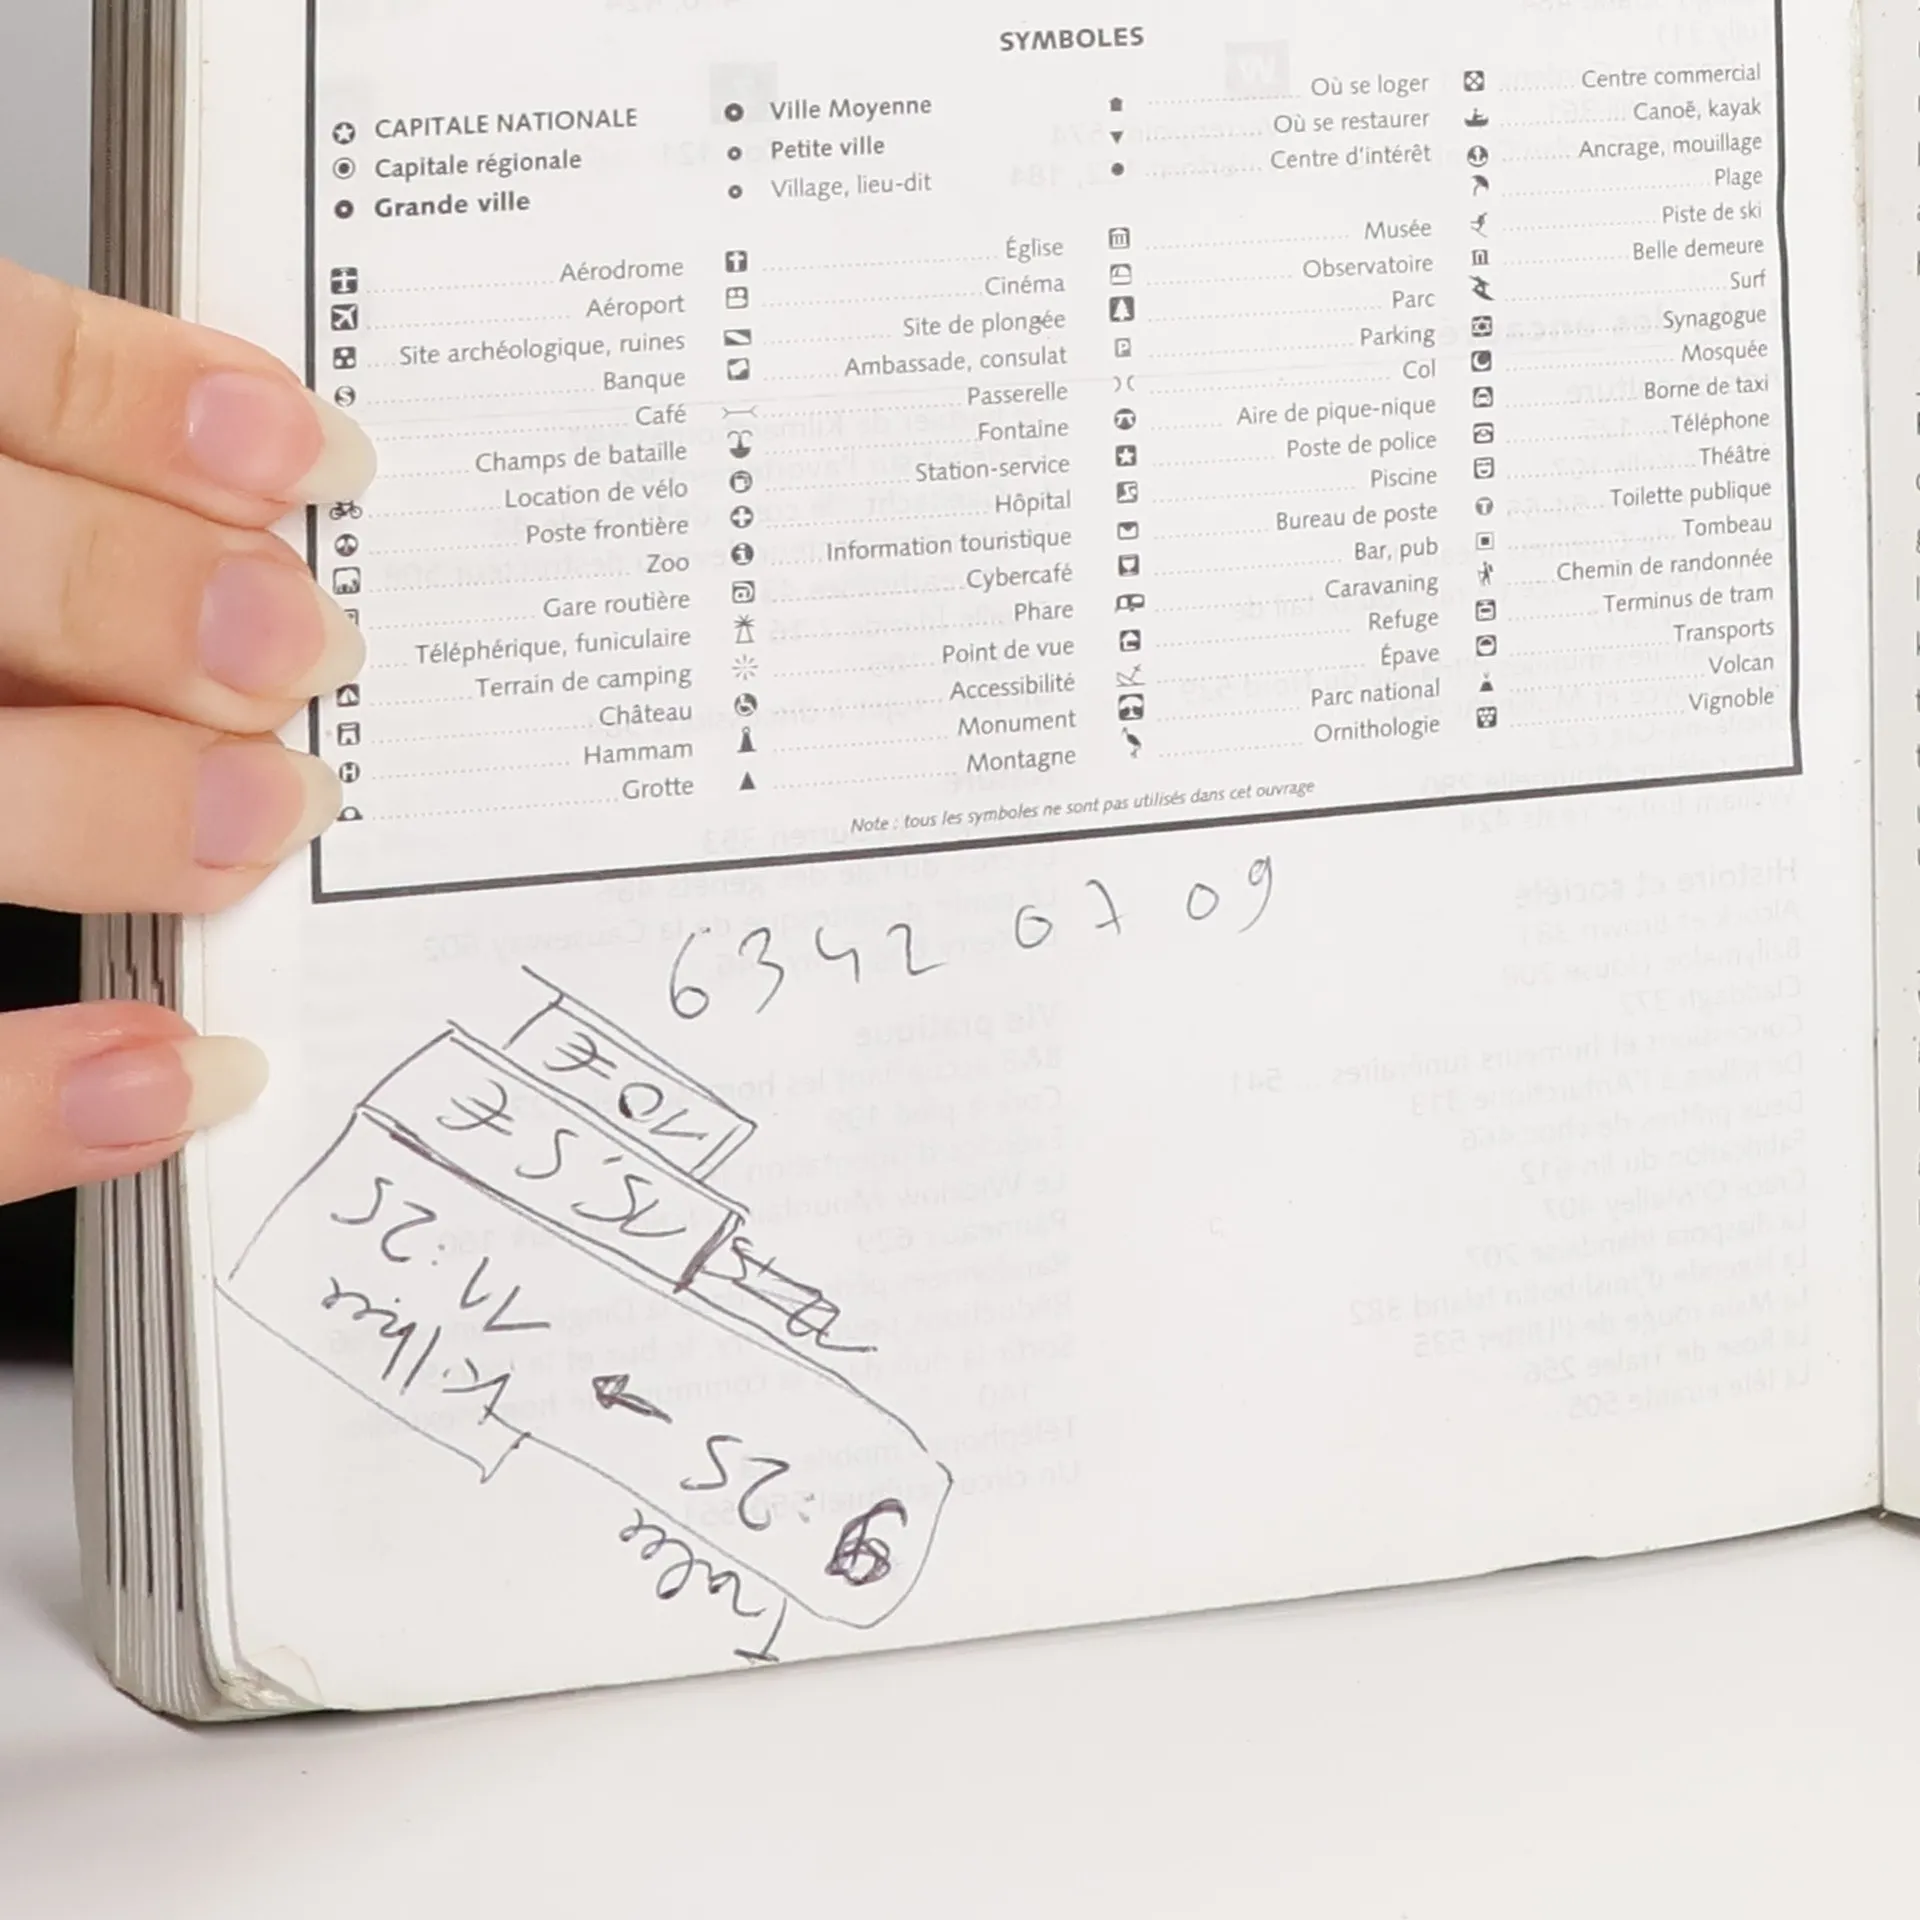 SYMBOLES
CAPITALE NATIONALE
Capitale régionale
Grande ville
Ville Moyenne
Petite ville
Village, lieu-dit
Où se loger
Où se restaurer
Centre d'intérêt
Aérodrome
Aéroport
Site archéologique, ruines
Banque
Café
Champs de bataille
Location de vélo
Poste frontière
Zoo
Gare routière
Téléphérique, funiculaire
Terrain de camping
Château
Hammam
Grotte
Église
Cinéma
Site de plongée
Ambassade, consulat
Passerelle
Fontaine
Station-service
Hôpital
Information touristique
Cybercafé
Phare
Point de vue
Accessibilité
Monument
Montagne
Musée
Observatoire
Parc
Parking
Col
Aire de pique-nique
Poste de police
Piscine
Bureau de poste
Bar, pub
Caravaning
Refuge
Épave
Parc national
Ornithologie
Centre commercial
Canoë, kayak
Ancrage, mouillage
Plage
Piste de ski
Belle demeure
Surf
Synagogue
Mosquée
Borne de taxi
Téléphone
Théâtre
Toilette publique
Tombeau
Chemin de randonnée
Terminus de tram
Transports
Volcan
Vignoble
Note : tous les symboles ne sont pas utilisés dans cet ouvrage
6342 07 09
Tralee
:25
11:25
15.5 €
10 €